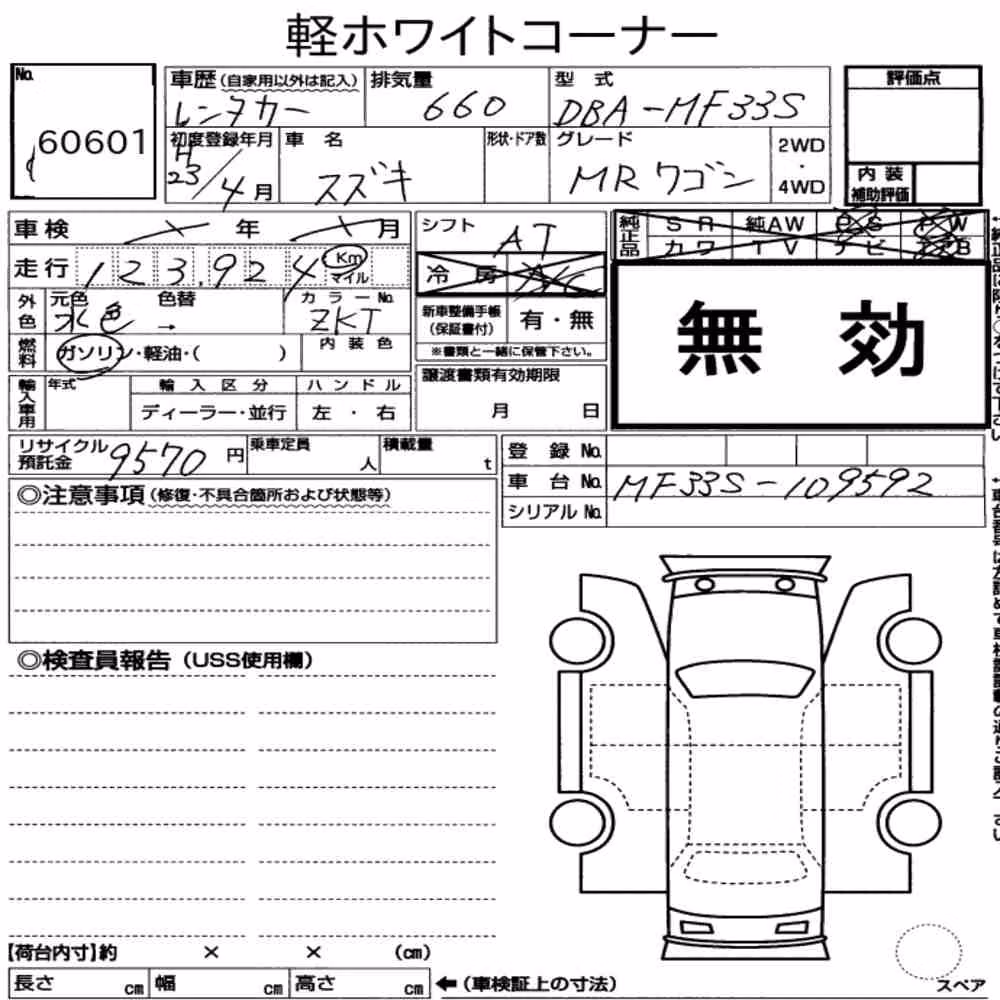 軽ホワイトコーナー
No.
60601
車歴(自家用以外は記入)
レンタカー
排気量
660
型 式
DBA-MF33S
評価点
初度登録年月
H
23/4月
車 名
スズキ
形状・ドア数
グレード
MRワゴン
2WD
・
4WD
内 装
補助評価
車検 年 月
走行 123,924 Km
マイル
シフト
AT
冷 房 A/C
純正品
S R 純AW P S P W
カワ T V ナビ
外色
元色 色替
水色 →
カラーNo.
ZKT
新車整備手帳
(保証書付)
有・無
※書類と一緒に保管下さい。
無 効
燃料
ガソリン・軽油・( )
内 装 色
輸入車用
年式
輸 入 区 分
ディーラー・並行
ハ ン ド ル
左 ・ 右
譲渡書類有効期限
月 日
リサイクル
預託金
9570 円
乗車定員
人
積載量
t
登 録 No.
車 台 No. MF33S-109592
シリアル No.
◎注意事項(修復・不具合箇所および状態等)
◎検査員報告(USS使用欄)
【荷台内寸】約 × × (cm)
長さ cm 幅 cm 高さ cm
←(車検証上の寸法)
スペア